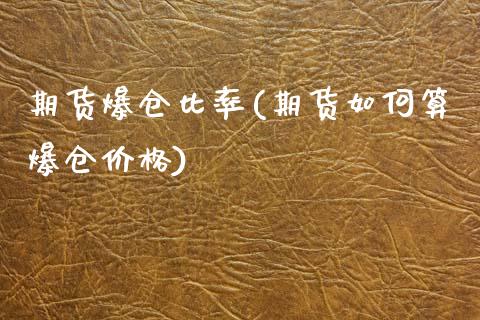 期货爆仓比率(期货如何算
爆仓价格)